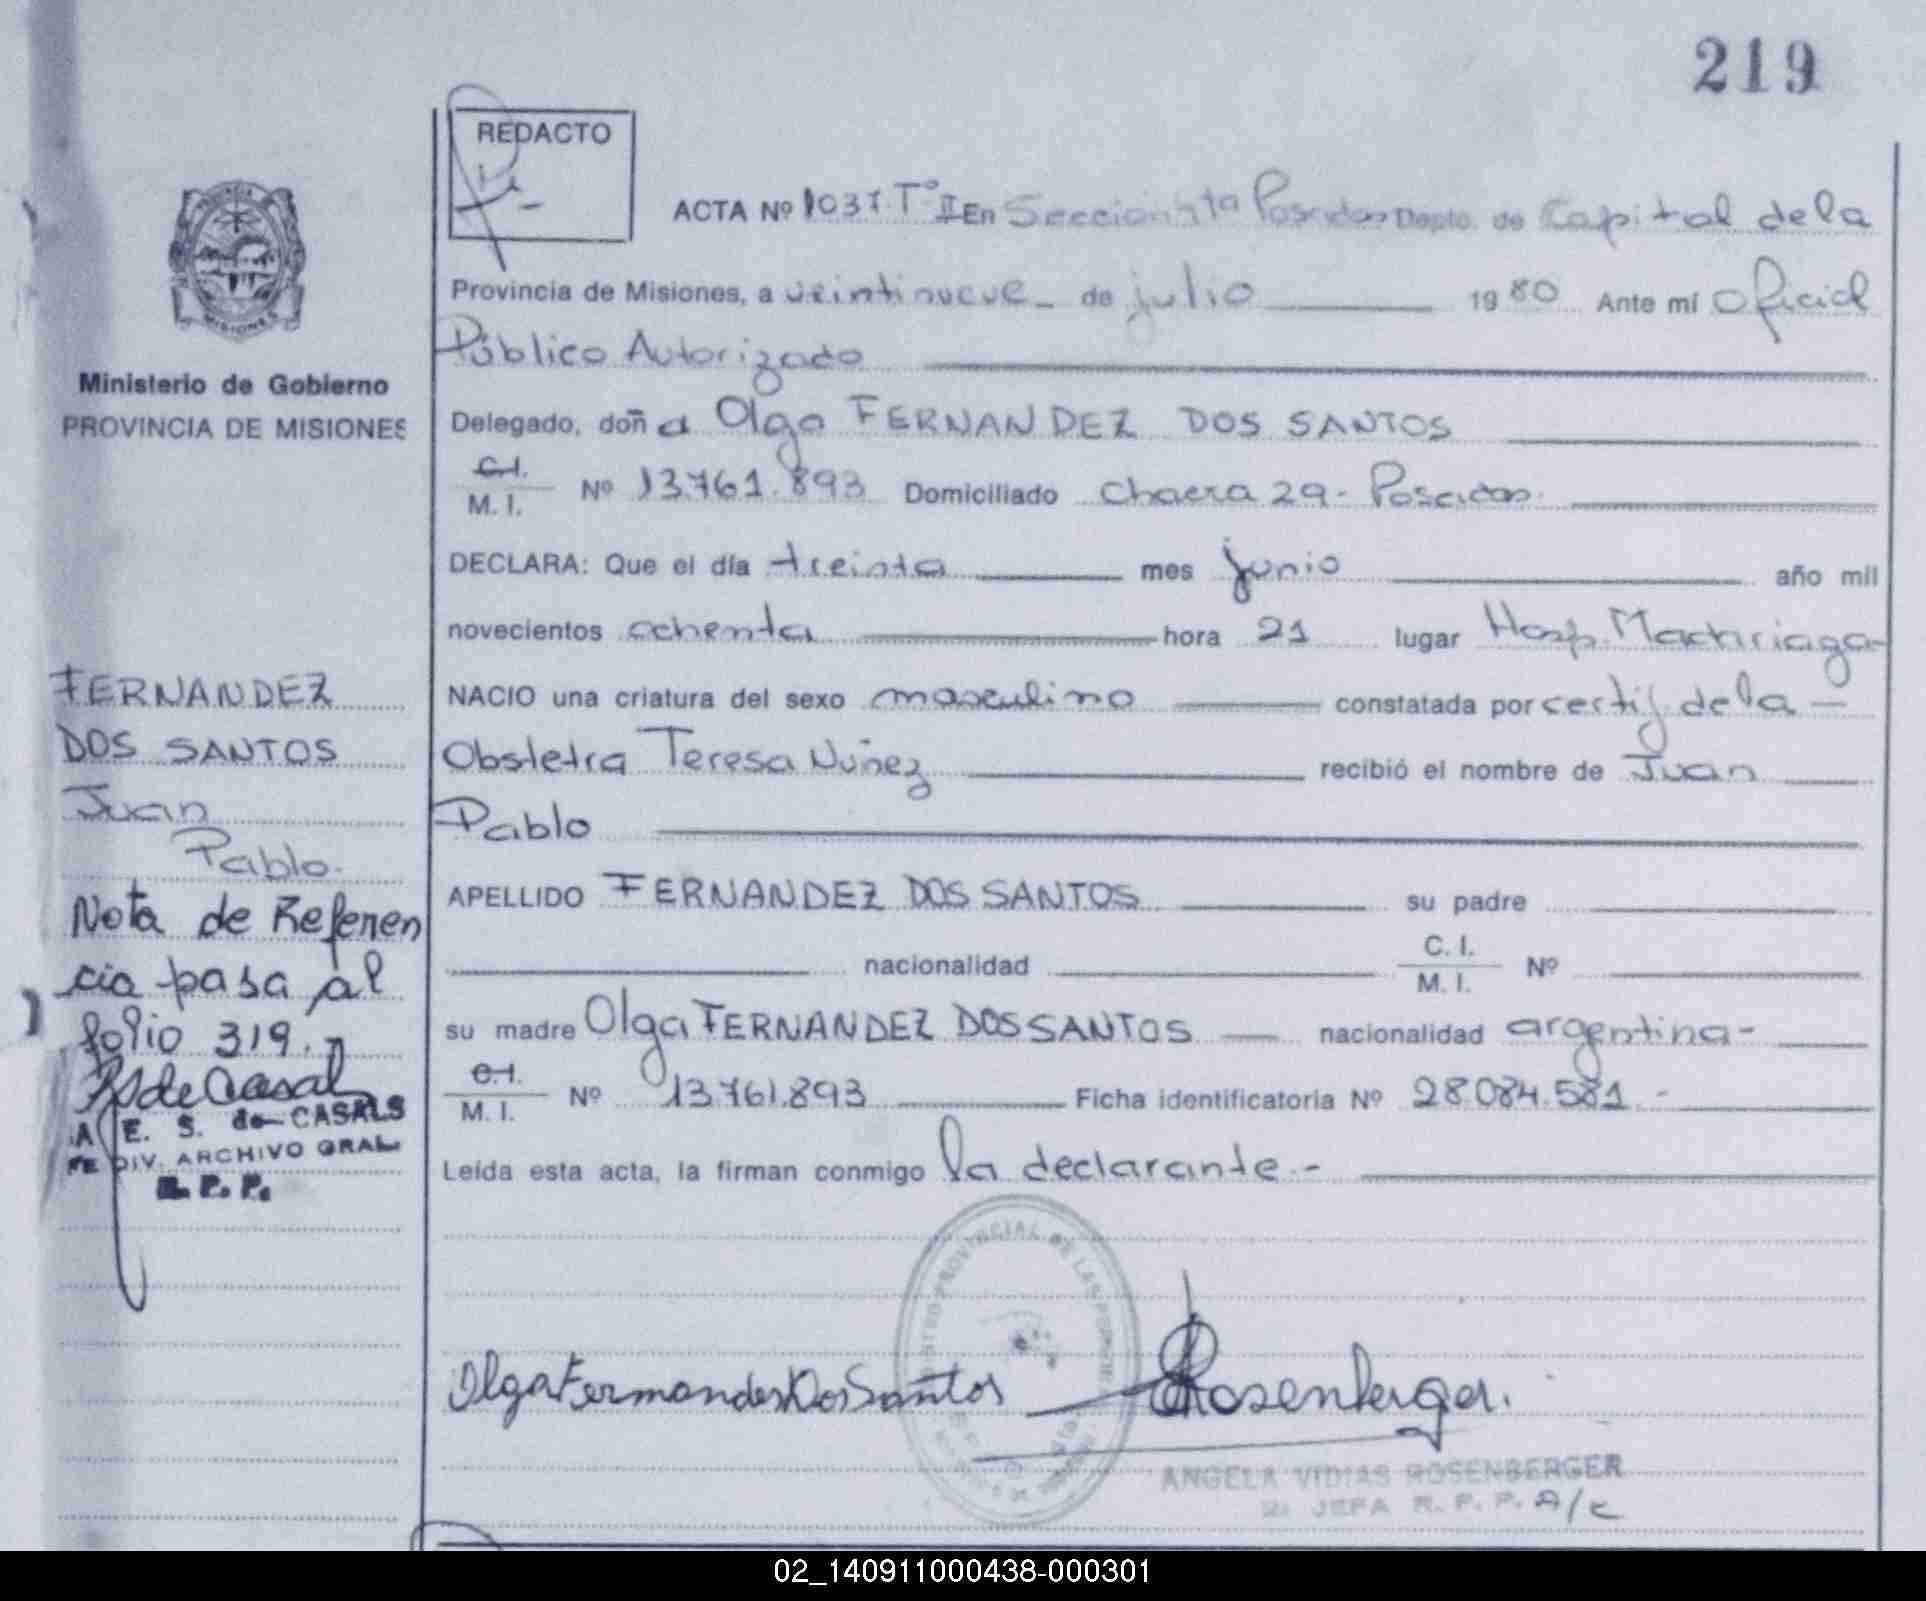 219
REDACTO
ACTA Nº 1037 Tº II En Sección 1ta Posadas Depto. de Capital de la
Provincia de Misiones, a veintinueve de julio 1980 Ante mí Oficial
Público Autorizado
Ministerio de Gobierno
PROVINCIA DE MISIONES
Delegado, doña Olga FERNANDEZ DOS SANTOS
C.I.
M. I. Nº 13.761.893 Domiciliado Chacra 29 - Posadas.
DECLARA: Que el día treinta mes junio año mil
novecientos ochenta hora 21 lugar Hosp. Madariaga
NACIO una criatura del sexo masculino constatada por certif de la
Obstetra Teresa Nuñez recibió el nombre de Juan
Pablo
APELLIDO FERNANDEZ DOS SANTOS su padre
nacionalidad C. I.
M. I. Nº
su madre Olga FERNANDEZ DOS SANTOS nacionalidad argentina -
C.I.
M. I. Nº 13.761.893 Ficha identificatoria Nº 28.084.581.-
Leída esta acta, la firman conmigo la declarante.-
FERNANDEZ
DOS SANTOS
Juan
Pablo.
Nota de Referen
cia pasa al
folio 319.-
E. S. de CASALS
DIV. ARCHIVO GRAL
R. P. P.
Olga Fernandez Dos Santos
Rosenberger.
ANGELA VIDIAS ROSENBERGER
JEFA R. P. P. A/c
MISIONES
02_140911000438-000301